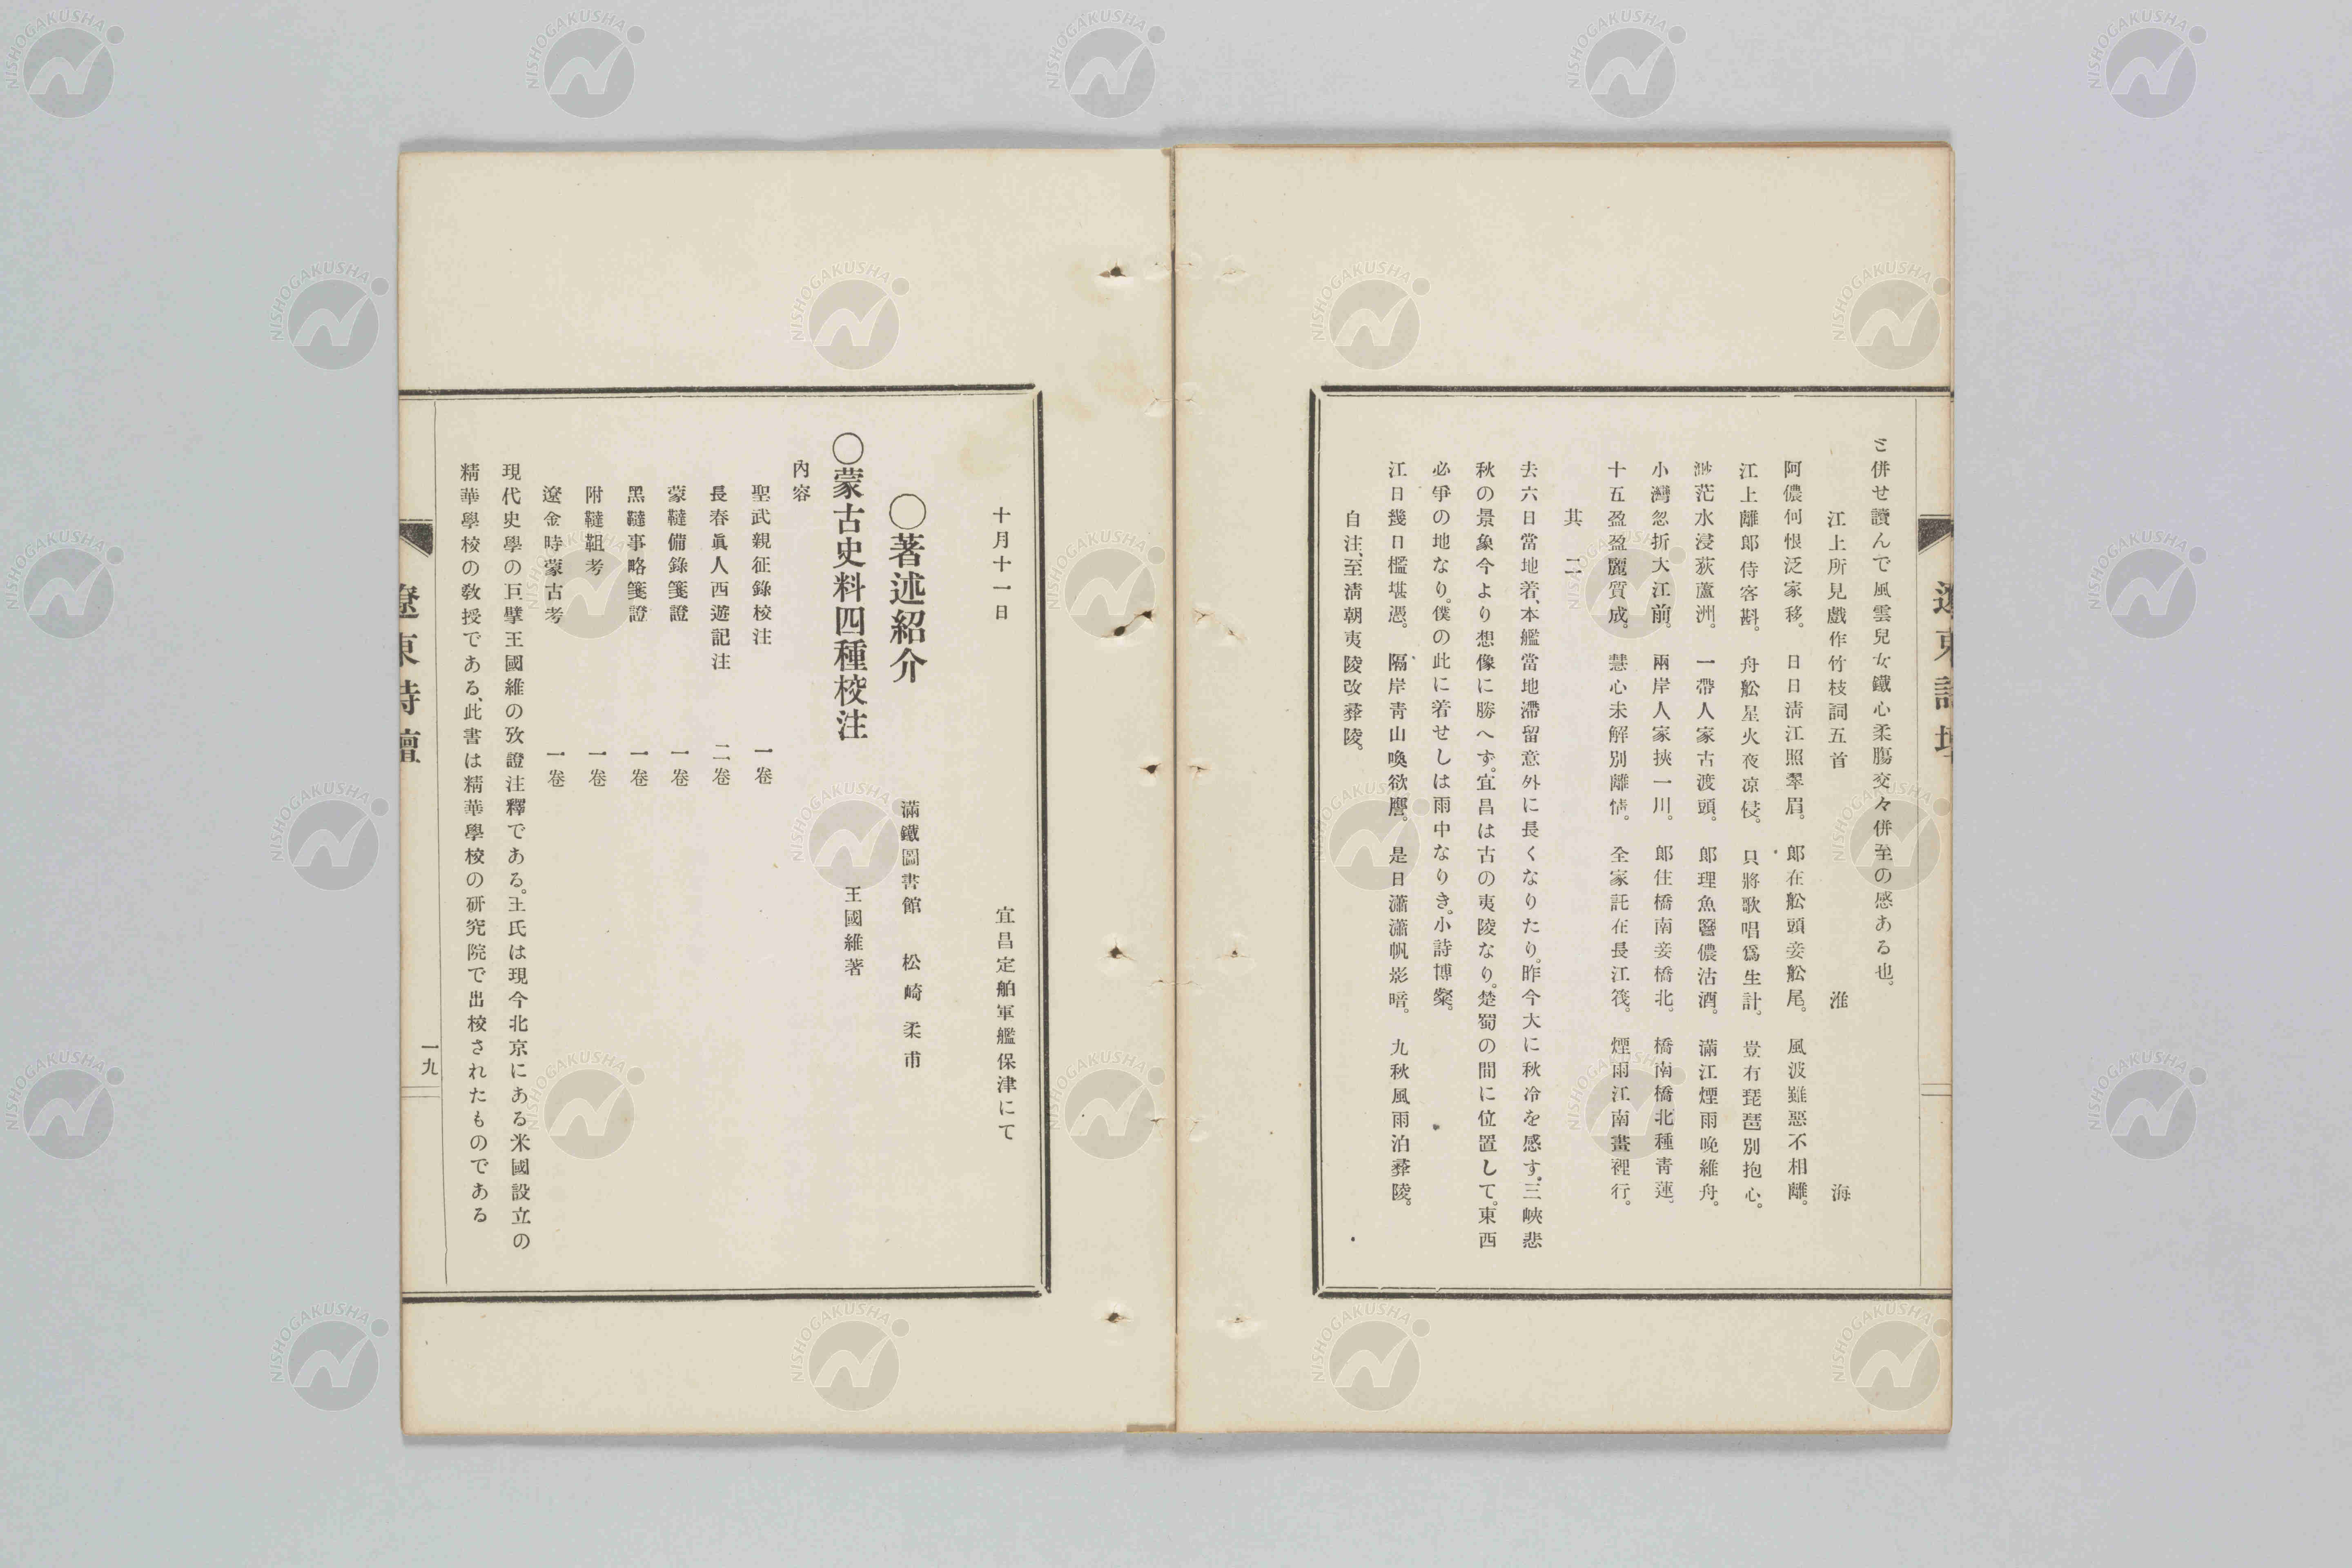 と併せ讀んで風雲兒女鐵心柔膓交々併至の感ある也。
江上所見戲作竹枝詞五首　淮海
阿儂何恨泛家移。日日淸江照翠眉。郎在舩頭妾舩尾。風波雖惡不相離。
江上離郎侍客斟。舟舩星火夜凉侵。只將歌唱爲生計。豈有琵琶別抱心。
渺茫水浸荻蘆洲。一帶人家古渡頭。郎理魚鹽儂沽酒。滿江煙雨晚維舟。
小灣忽折大江前。兩岸人家挾一川。郎住橋南妾橋北。橋南橋北種靑蓮。
十五盈盈麗質成。慧心未解別離情。全家託在長江筏。煙雨江南畫裡行。
其二
去六日當地着、本艦當地滯留意外に長くなりたり。昨今大に秋冷を感す。三峽悲
秋の景象今より想像に勝へず。宜昌は古の夷陵なり。楚蜀の間に位置して。東西
必爭の地なり。僕の此に着せしは雨中なりき。小詩博粲。
江日幾日檻堪憑。隔岸靑山喚欲譍。是日瀟瀟帆影暗。九秋風雨泊彛陵。
自注、至淸朝夷陵改彛陵。
遼東詩壇
十月十一日　宜昌定舶軍艦保津にて
〇著述紹介　滿鐵圖書館　松崎柔甫
〇蒙古史料四種校注　王國維著
內容
聖武親征錄校注　一卷
長春眞人西遊記注　二卷
蒙韃備錄箋證　一卷
黑韃事略箋證　一卷
附韃靼考　一卷
遼金時蒙古考　一卷
現代史學の巨擘王國維の攷證注釋である。王氏は現今北京にある米國設立の
精華學校の敎授である、此書は精華學校の硏究院で出校されたものである
遼東詩壇　一九
NISHOGAKUSHA